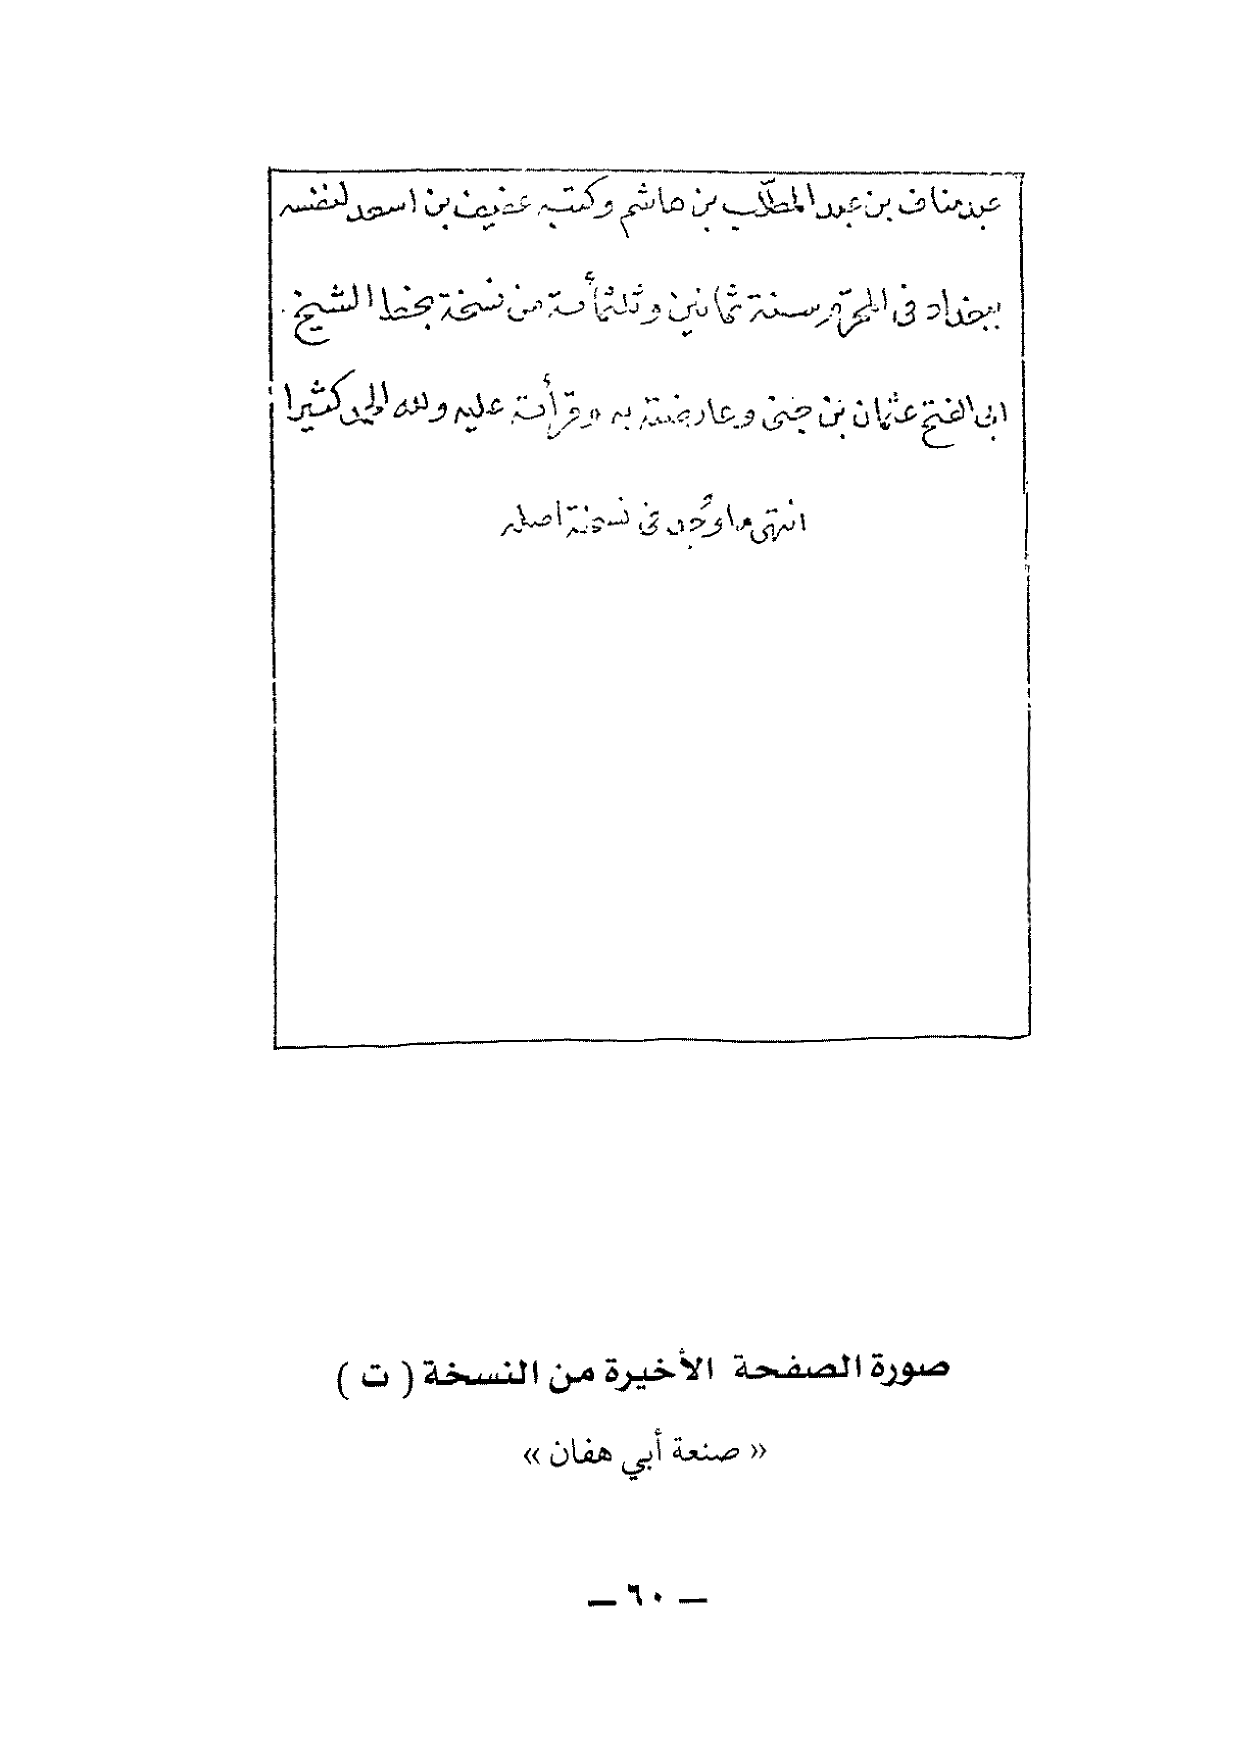 عبدمناف بن عبد المطلّب بن هاشم وكتبه عفيف بن اسعد لنفسه
ببغداد فى المحرّم سنة ثمانين وثلثمأئة من نسخة بخط الشيخ
ابى الفتح عثمان بن جنى وعارضته به وقرأته عليه ولله الحمد كثيرا
انتهى ما وُجد فى نسخة اصله
صورة الصفحة الأخيرة من النسخة ( ت )
« صنعة أبي هفان »
— ٦٠ —